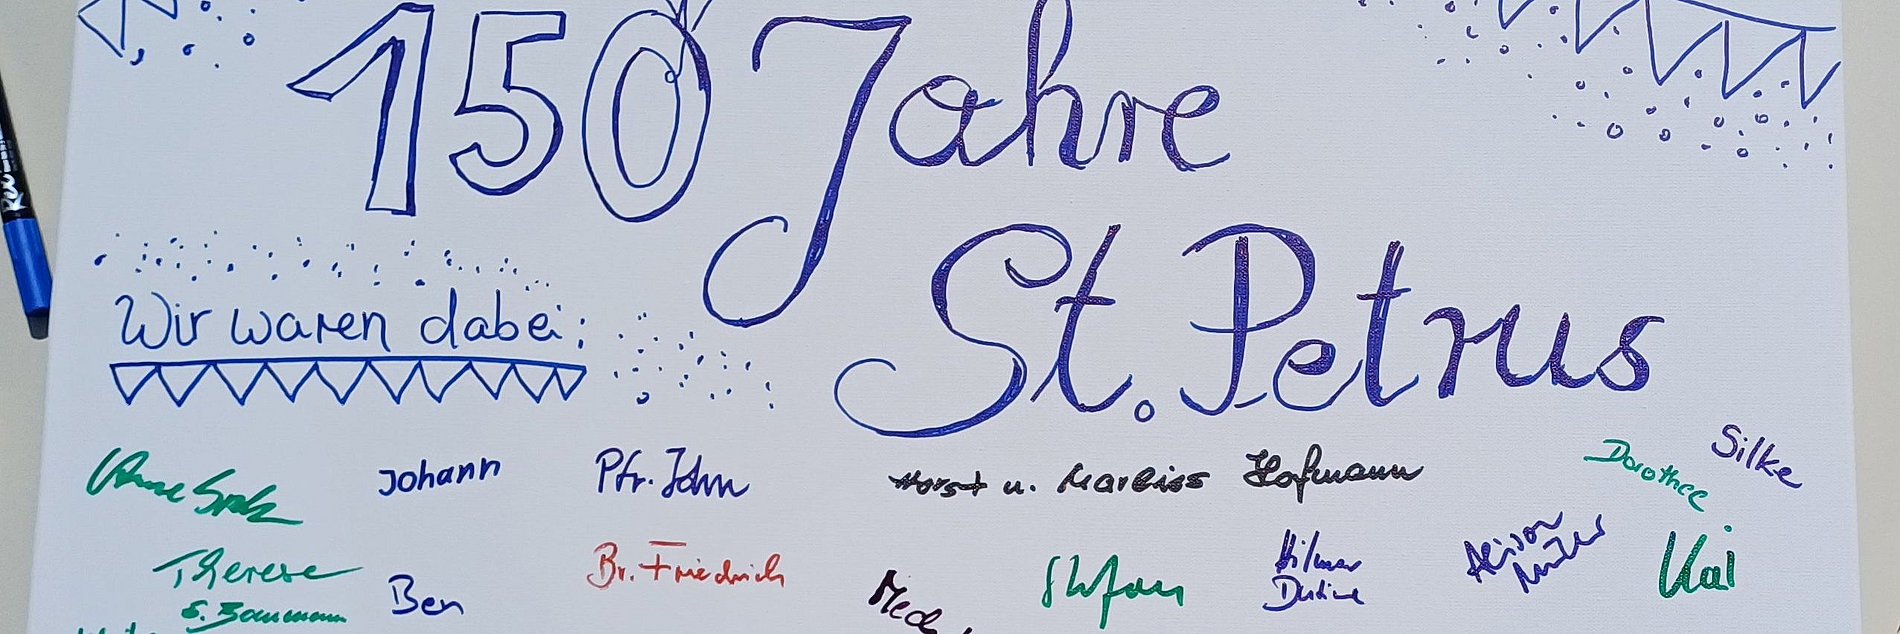 150 Jahre
St. Petrus
Wir waren dabei:
Johann
Pfr. John
Horst u. Marliss Hofmann
Dorothee
Silke
Therese
S. Baumann
Ben
Br. Friedrich
Stefan
Hilmar
Kai